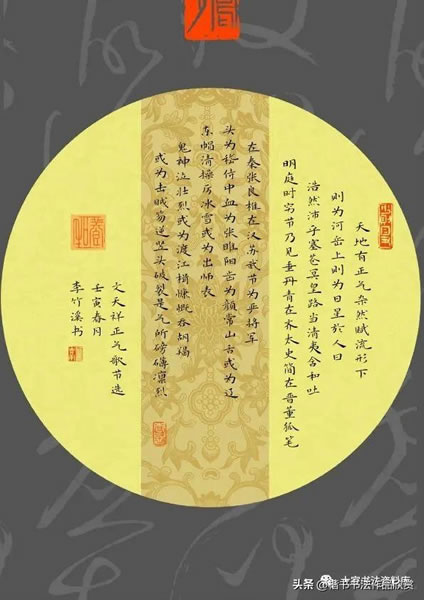 天地有正气杂然赋流形下
则为河岳上则为日星於人曰
浩然沛乎塞苍冥皇路当清夷含和吐
明庭时穷节乃见垂丹青在齐太史简在晋董狐笔
在秦张良椎在汉苏武节为严将军
头为嵇侍中血为张睢阳齿为颜常山舌或为辽
东帽清操厉冰雪或为出师表
鬼神泣壮烈或为渡江楫慷慨吞胡羯
或为击贼笏逆竖头破裂是气所磅礴凛烈
文天祥正气歌节选
壬寅春月
李竹溪书
头条 @楷书书法作品欣赏